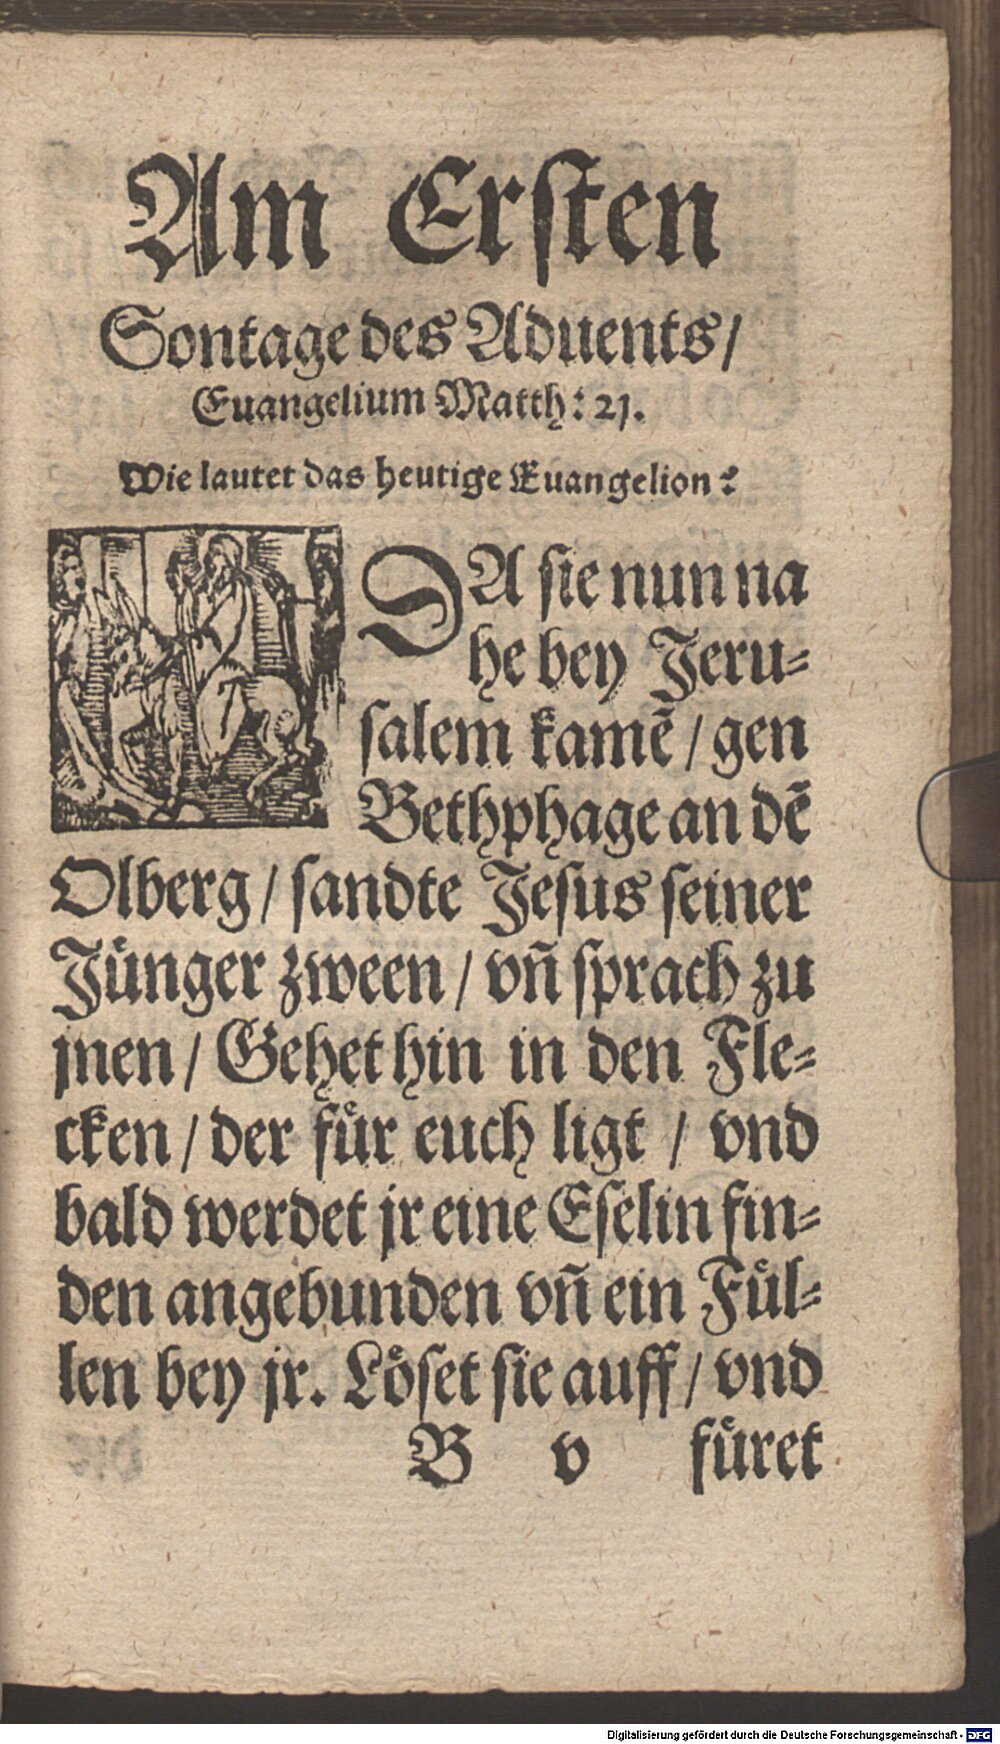 Am Erſten
Sontage des Aduents/
Euangelium Matth: 21.
Wie lautet das heutige Euangelion?
DA ſie nun na
he bey Jeru⸗
ſalem kamẽ / gen
Bethphage an dẽ
Olberg / ſandte Jeſus ſeiner
Juͤnger zween / vñ ſprach zu
jnen / Gehet hin in den Fle⸗
cken / der fuͤr euch ligt / vnd
bald werdet jr eine Eſelin fin⸗
den angebunden vñ ein Fuͤl⸗
len bey jr. Loͤſet ſie auff / vnd
B v fuͤret
Digitalisierung gefördert durch die Deutsche Forschungsgemeinschaft - DFG